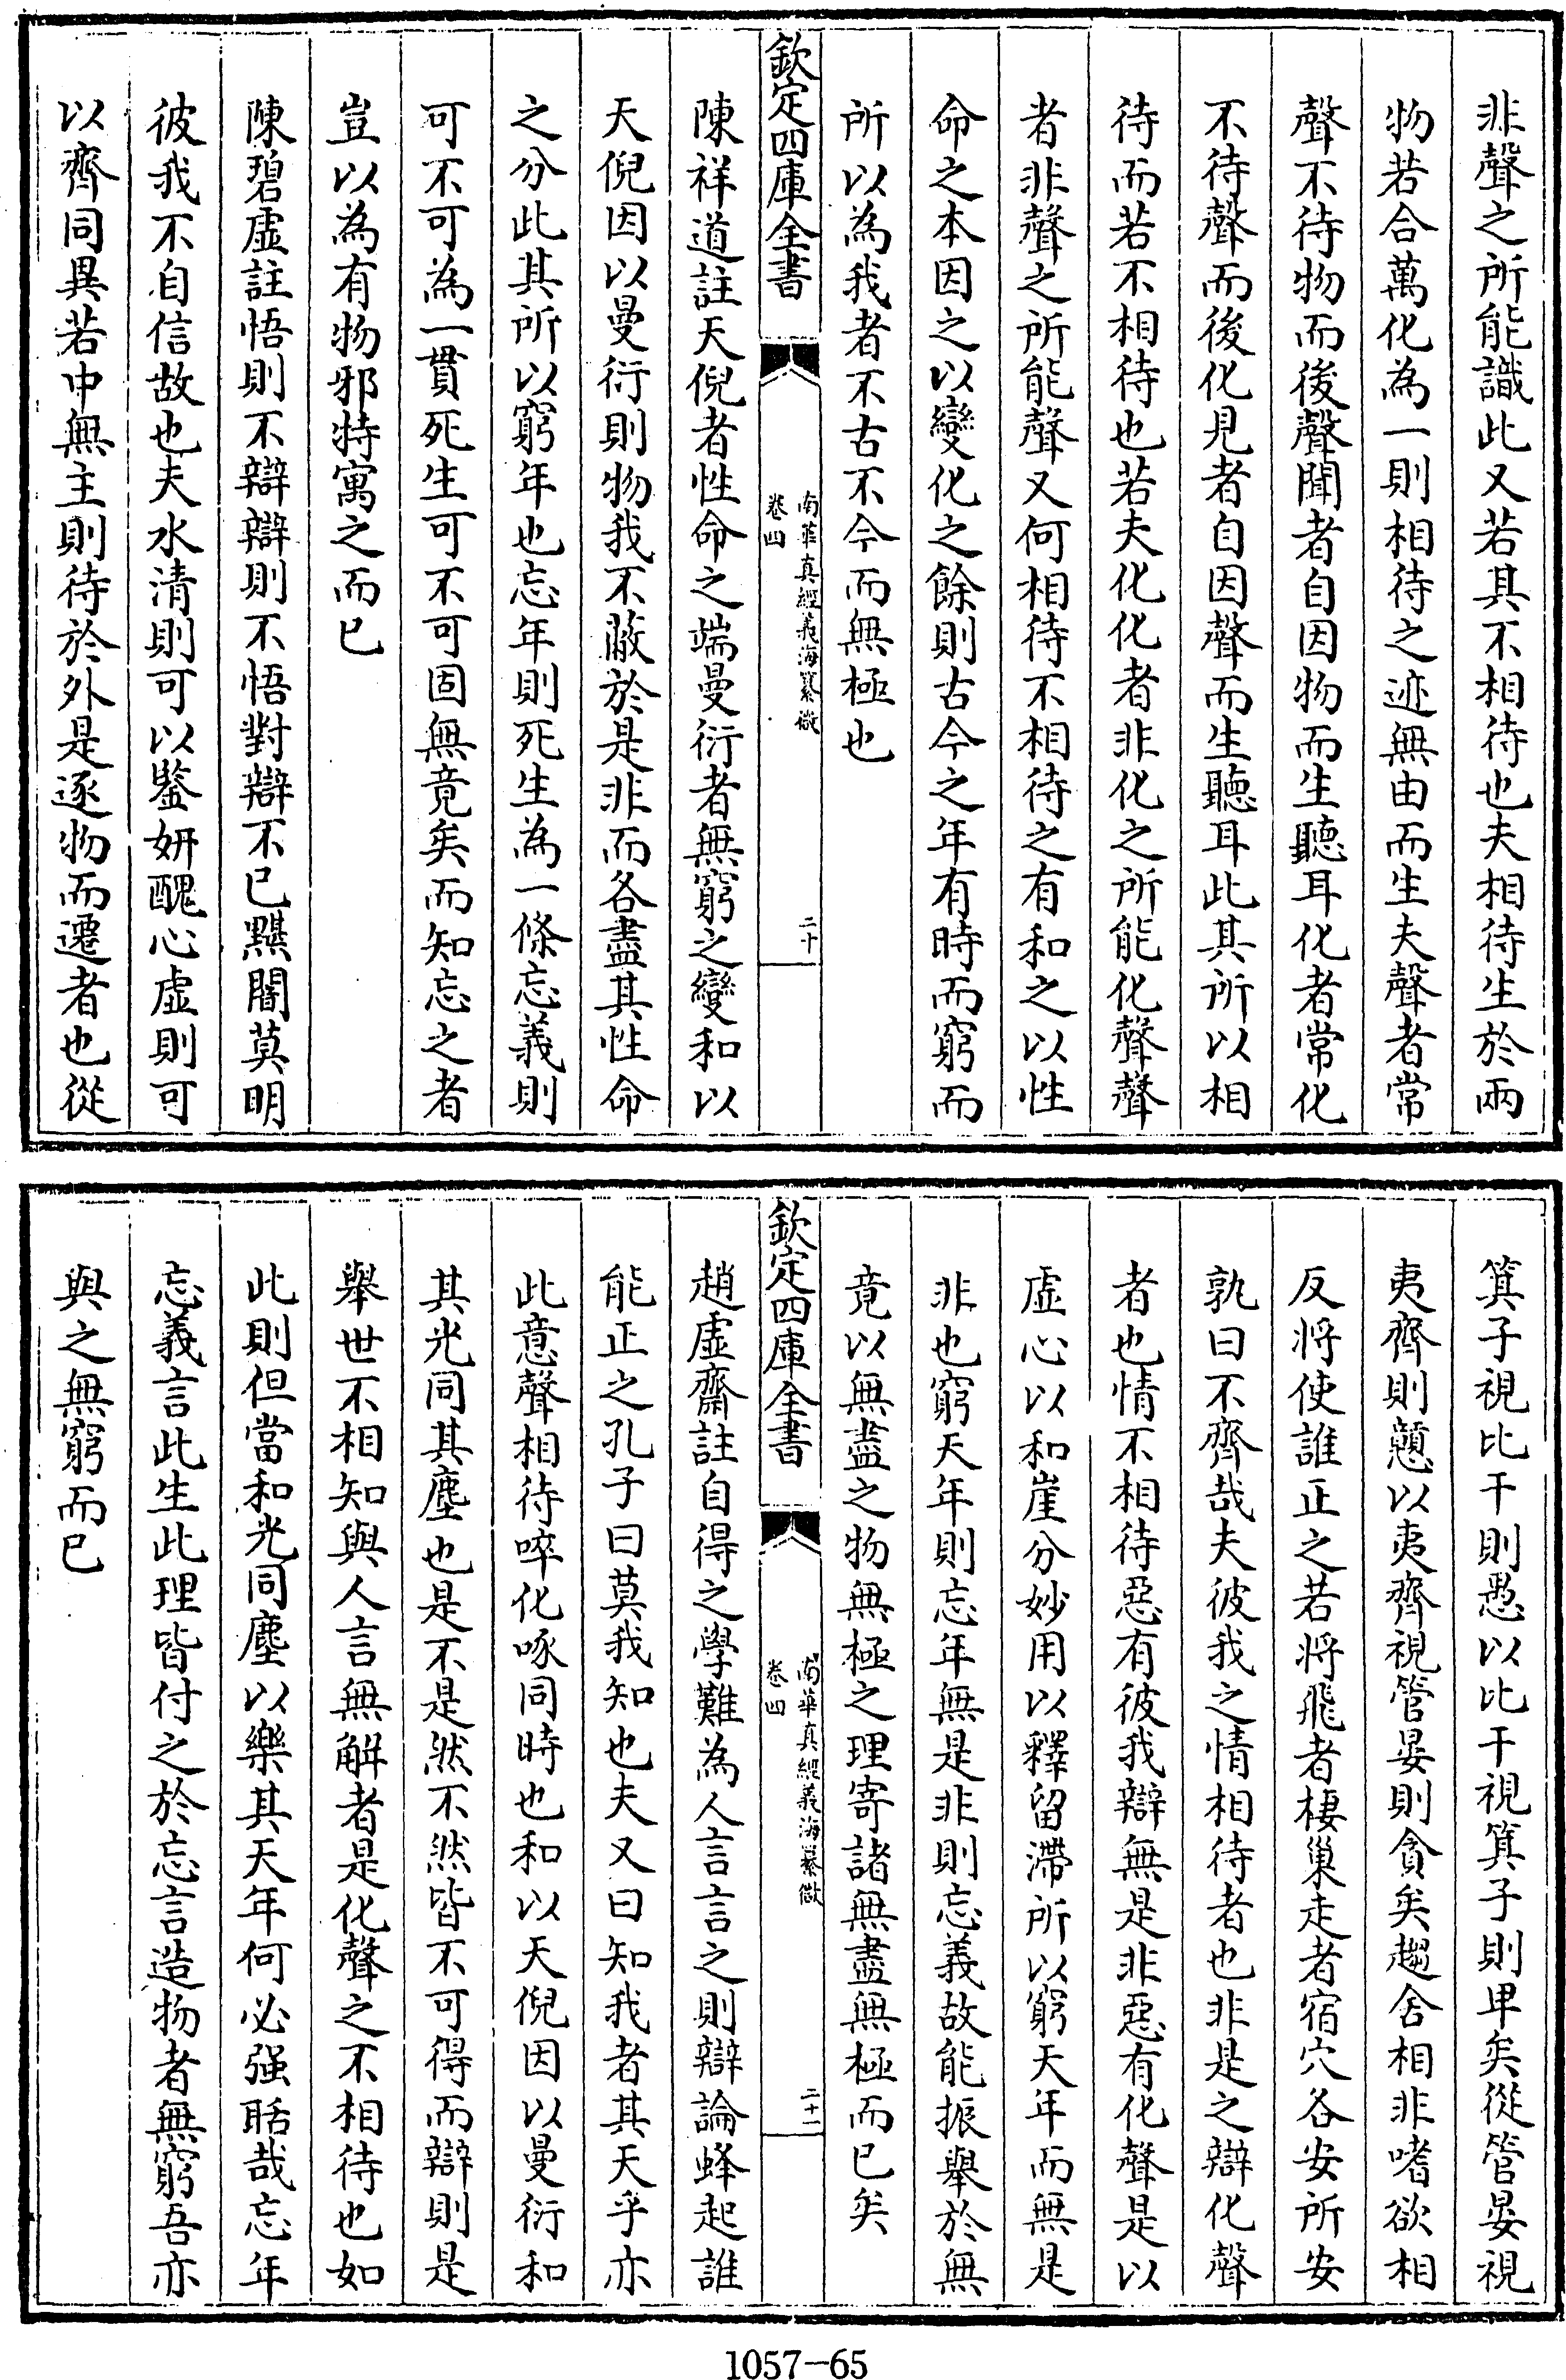 非聲之所能識此又若其不相待也夫相待生於兩
物若合萬化為一則相待之迹無由而生夫聲者常
聲不待物而後聲聞者自因物而生聽耳化者常化
不待聲而後化見者自因聲而生聽耳此其所以相
待而若不相待也若夫化化者非化之所能化聲聲
者非聲之所能聲又何相待不相待之有和之以性
命之本因之以變化之餘則古今之年有時而窮而
所以為我者不古不今而無極也
欽定四庫全書
南華真經義海纂微
卷四
二十
陳祥道註天倪者性命之端曼衍者無窮之變和以
天倪因以曼衍則物我不蔽於是非而各盡其性命
之分此其所以窮年也忘年則死生為一條忘義則
可不可為一貫死生可不可固無竟矣而知忘之者
豈以為有物邪特寓之而已
陳碧虛註悟則不辯辯則不悟對辯不已黮闇莫明
彼我不自信故也夫水清則可以鑒妍醜心虛則可
以齊同異若中無主則待於外是逐物而遷者也從
箕子視比干則愚以比干視箕子則卑矣從管晏視
夷齊則戇以夷齊視管晏則貪矣趨舍相非嗜欲相
反將使誰正之若將飛者棲巢走者宿穴各安所安
孰曰不齊哉夫彼我之情相待者也非是之辯化聲
者也情不相待惡有彼我辯無是非惡有化聲是以
虛心以和崖分妙用以釋留滯所以窮天年而無是
非也窮天年則忘年無是非則忘義故能振舉於無
竟以無盡之物無極之理寄諸無盡無極而已矣
欽定四庫全書
南華真經義海纂微
卷四
二十一
趙虛齋註自得之學難為人言言之則辯論蜂起誰
能正之孔子曰莫我知也夫又曰知我者其天乎亦
此意聲相待啐化啄同時也和以天倪因以曼衍和
其光同其塵也是不是然不然皆不可得而辯則是
舉世不相知與人言無解者是化聲之不相待也如
此則但當和光同塵以樂其天年何必强聒哉忘年
忘義言此生此理皆付之於忘言造物者無窮吾亦
與之無窮而已
1057-65